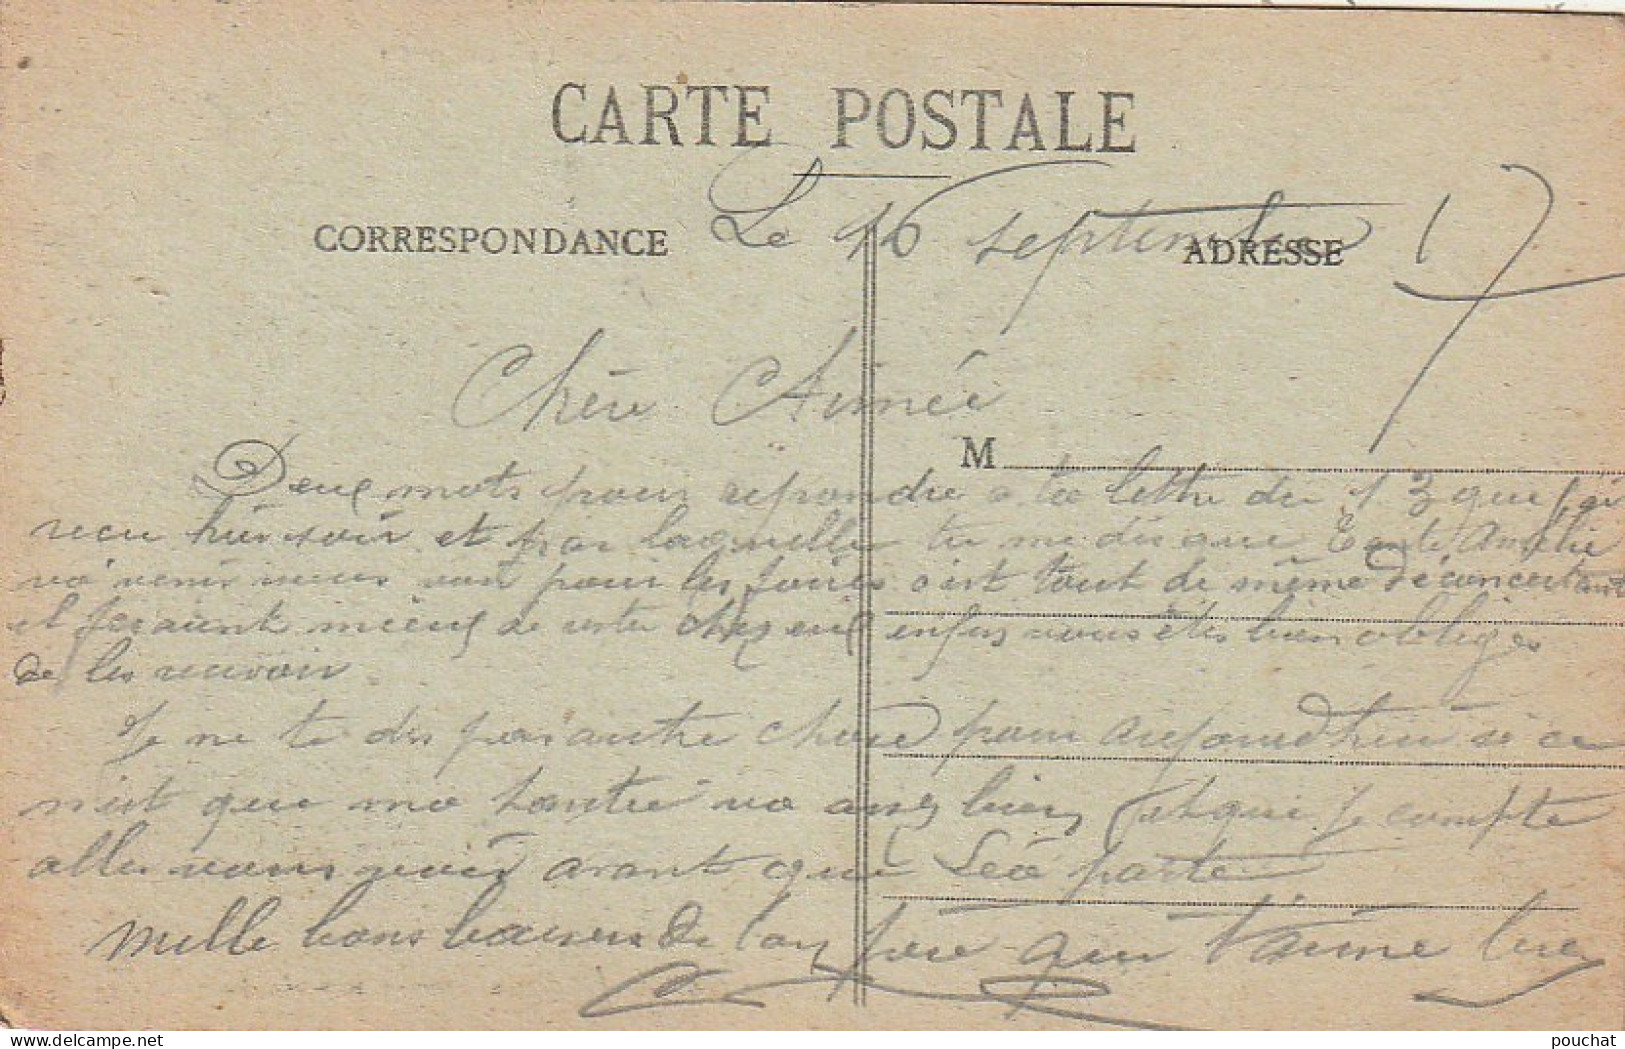 CARTE POSTALE
CORRESPONDANCE
ADRESSE
Le 16 septembre 17
Chère Aimée
M
Deux mots pour repondre a ta lettre du 13 que j'ai
recu hier soir et par laquelle tu me dis que Tante Amelie
va venir vous voir pour les foires c'est tout de même déconcertant
il feraient mieux de rester chez eux enfin vous êtes bien obliges
de les recevoir
Je ne te dis pas autre chose pour aujourd'hui si ce
n'est que ma santé va assez bien et que je compte
aller vous voir avant que Léo parte
Mille bons baisers de ton père qui t'aime bien
pouchat
www.delcampe.net